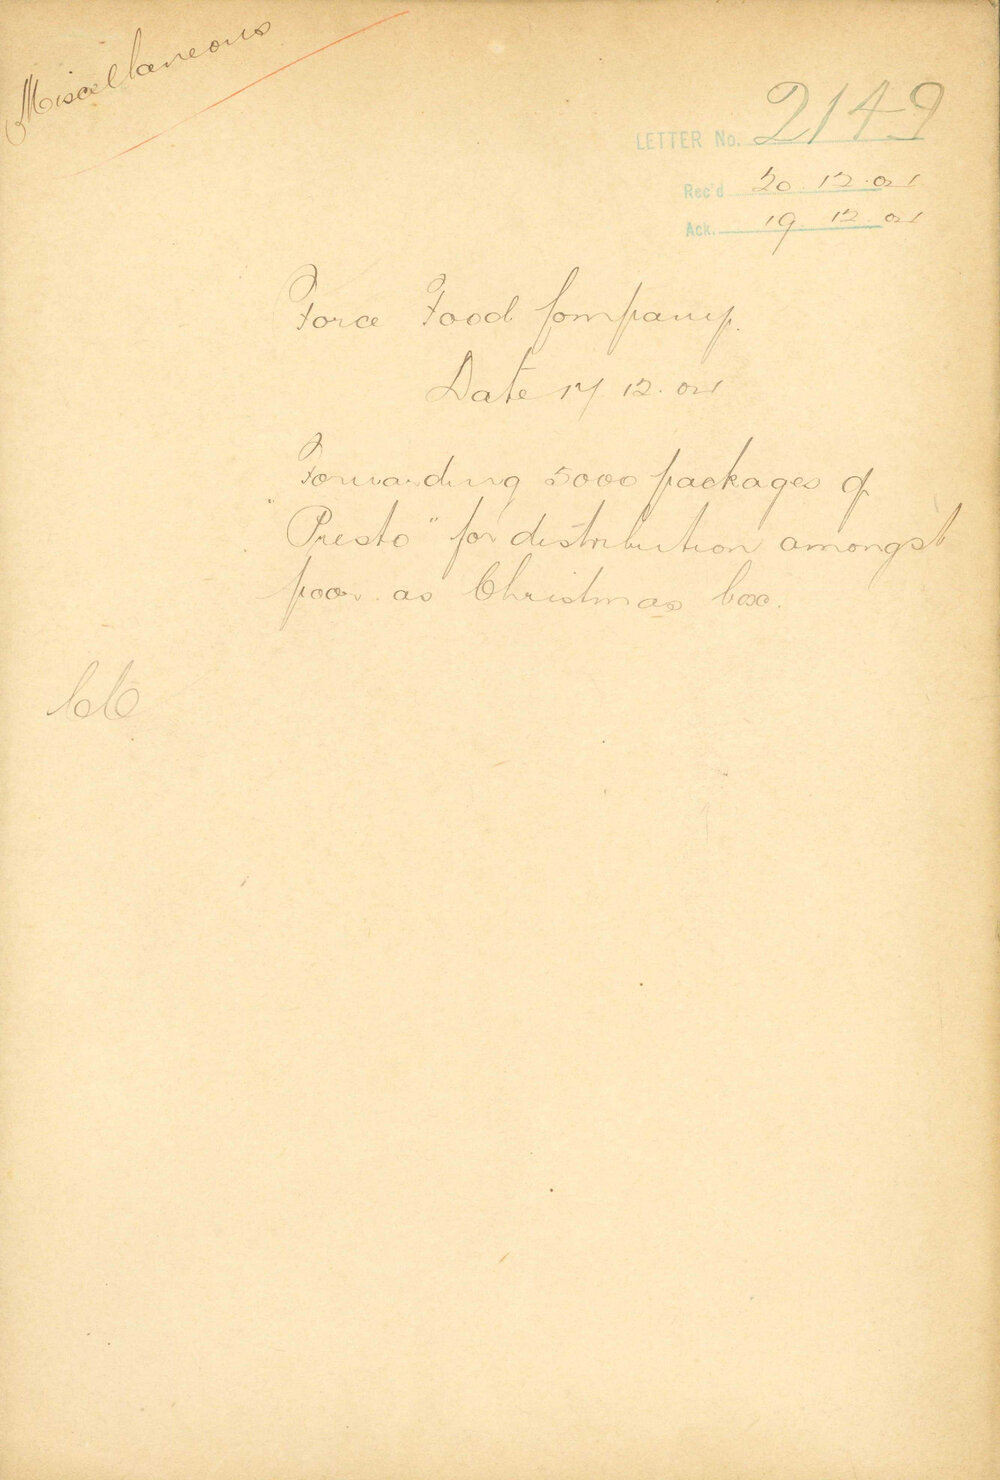 Miscellaneous
LETTER No. 2149
Rec'd 20.12.04
Ack. 19 12.04
Force Food Company.
Date 17 12.04
Forwarding 5000 packages of
"Presto" for distribution amongst
poor as Christmas box.